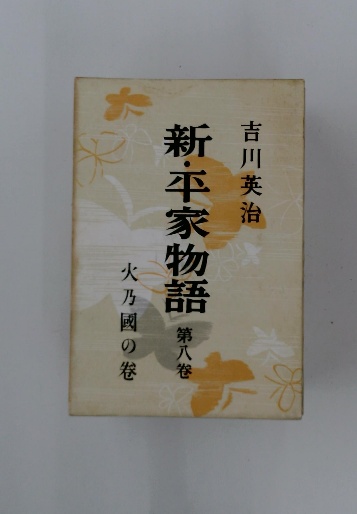 吉川英治
新・平家物語 第八巻
火乃國の巻